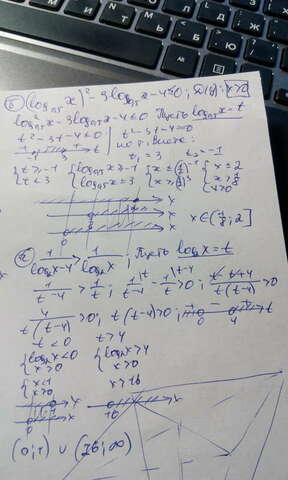 б) (log₀,₅x)² - 3log₀,₅x - 4 ≤ 0; D(y): x>0
log²₀,₅x - 3log₀,₅x - 4 ≤ 0 Пусть log₀,₅x = t
t² - 3t - 4 ≤ 0 | t² - 3t - 4 = 0
по т. Виета:
t₁ = 3 t₂ = -1
{ t ≥ -1 { log₀,₅x ≥ -1 { x ≤ (½)⁻¹ { x ≤ 2
t ≤ 3 log₀,₅x ≤ 3 x ≥ (½)³ x ≥ ⅛
x > 0
x
x
0 x
x ∈ (⅛; 2]
1/(log₂x-4) > 1/log₂x ; Пусть log₂x = t
1/(t-4) > 1/t ; 1/(t-4) - 1/t > 0 ; (t-t+4)/(t(t-4)) > 0
4/(t(t-4)) > 0; t(t-4) > 0; + - + 0 4 t
t < 0 t > 4
{ log₂x < 0 { log₂x > 4
x > 0 x > 0
{ x < 1 x > 16
x > 0
0 1 x 16 x
(0; 1) ∪ (16; ∞)